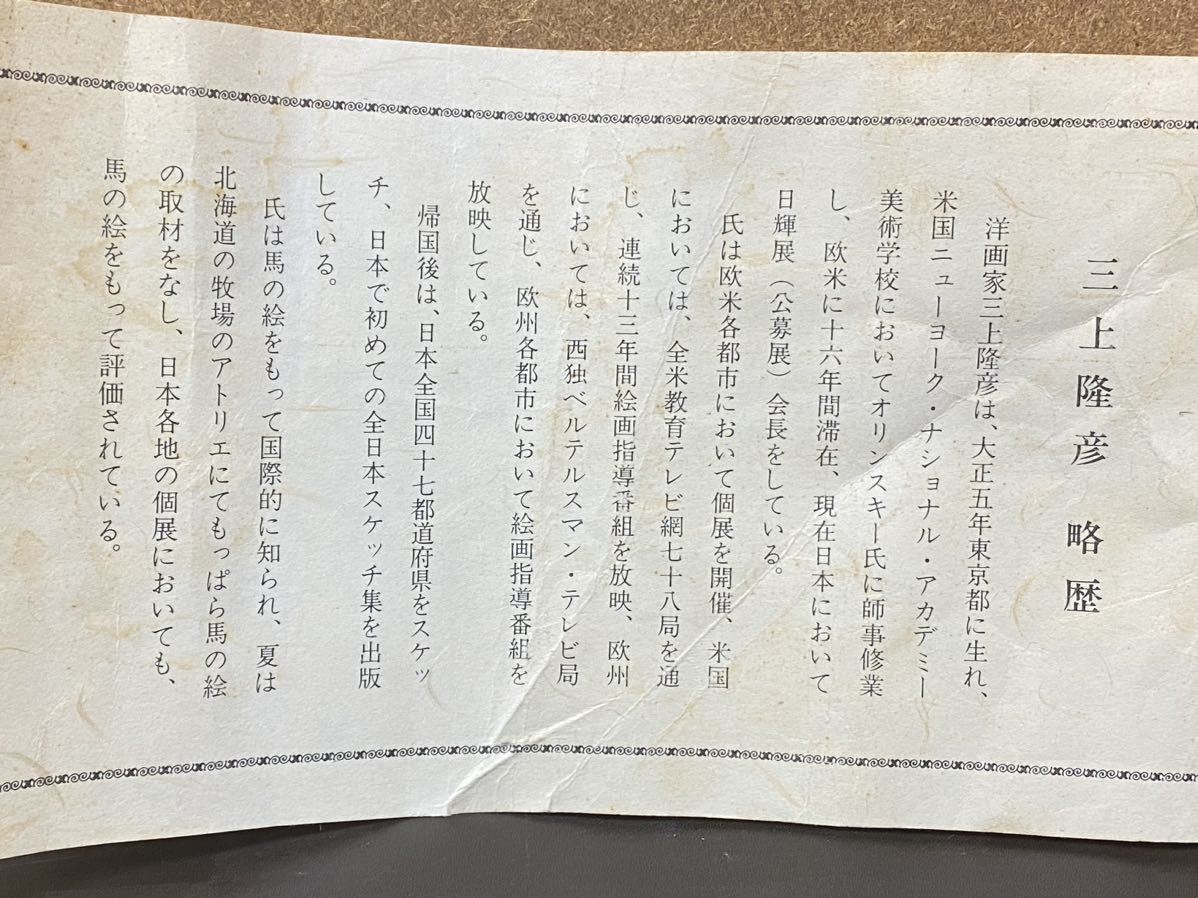 三上隆彦 略歴
洋画家三上隆彦は、大正五年東京都に生れ、
米国ニューヨーク・ナショナル・アカデミー
美術学校においてオリンスキー氏に師事修業
し、欧米に十六年間滞在、現在日本において
日輝展（公募展）会長をしている。
氏は欧米各都市において個展を開催、米国
においては、全米教育テレビ網七十八局を通
じ、連続十三年間絵画指導番組を放映、欧州
においては、西独ベルテルスマン・テレビ局
を通じ、欧州各都市において絵画指導番組を
放映している。
帰国後は、日本全国四十七都道府県をスケッ
チ、日本で初めての全日本スケッチ集を出版
している。
氏は馬の絵をもって国際的に知られ、夏は
北海道の牧場のアトリエにてもっぱら馬の絵
の取材をなし、日本各地の個展においても、
馬の絵をもって評価されている。